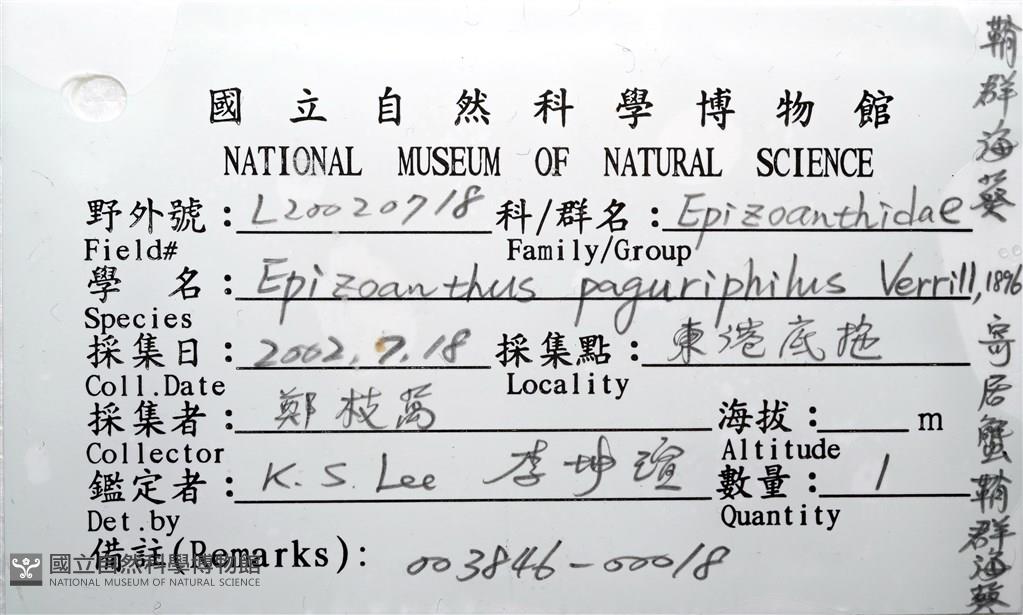 國立自然科學博物館
NATIONAL MUSEUM OF NATURAL SCIENCE
野外號：L20020718 科/群名：Epizoanthidae
Field# Family/Group
學名：Epizoanthus paguriphilus Verrill, 1896
Species
採集日：2002.7.18 採集點：東港底拖
Coll.Date Locality
採集者：鄭枝萬 海拔： m
Collector Altitude
鑑定者：K.S. Lee 李坤瑄 數量：1
Det.by Quantity
備註(Remarks)：003846-00018
鞘群海葵
寄居蟹鞘群海葵
國立自然科學博物館
NATIONAL MUSEUM OF NATURAL SCIENCE